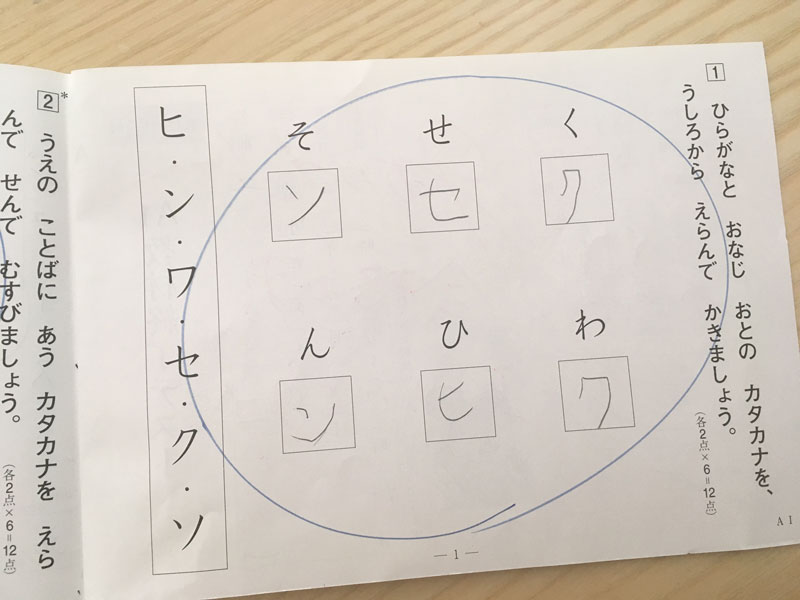 1 ひらがなと おなじ おとの カタカナを、
うしろから えらんで かきましょう。
(各2点×6=12点)
く
ク
わ
ワ
せ
セ
ひ
ヒ
そ
ソ
ん
ン
ヒ・ン・ワ・セ・ク・ソ
— 1 —
A 1
2* うえの ことばに あう カタカナを えら
んで せんで むすびましょう。
(各2点×6=12点)